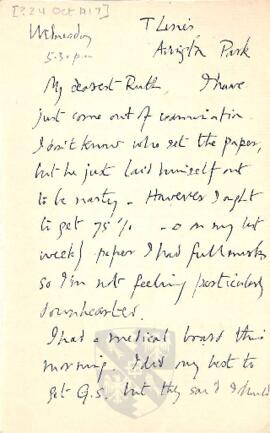 [?24 Oct 1917]
Wednesday
5.30 p.m
T Lines,
Avington Park
My dearest Ruth, I have
just come out of examination.
I don't know who set the paper,
but he just laid himself out
to be nasty. However I ought
to get 75% on my last
weekly paper I had full marks
so I'm not feeling particularly
downhearted.
I had a medical board this
morning. I did my best to
get G.S. but they said I should